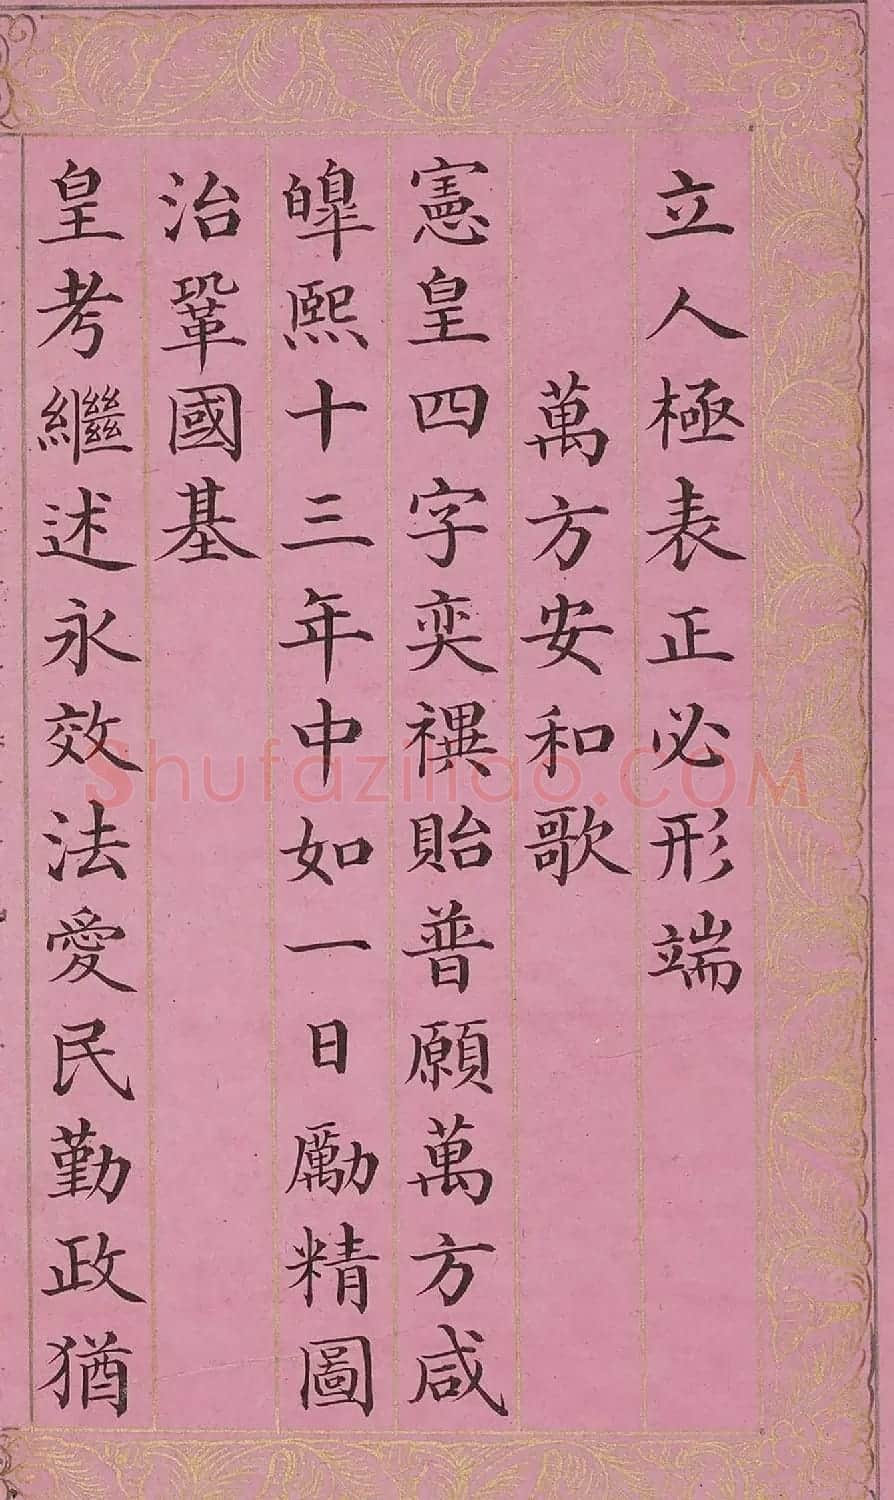 立人極表正必形端
萬方安和歌
憲皇四字奕禩貽普願萬方咸
皥熙十三年中如一日勵精圖
治鞏國基
皇考繼述永效法愛民勤政猶
Shufaziliao.COM